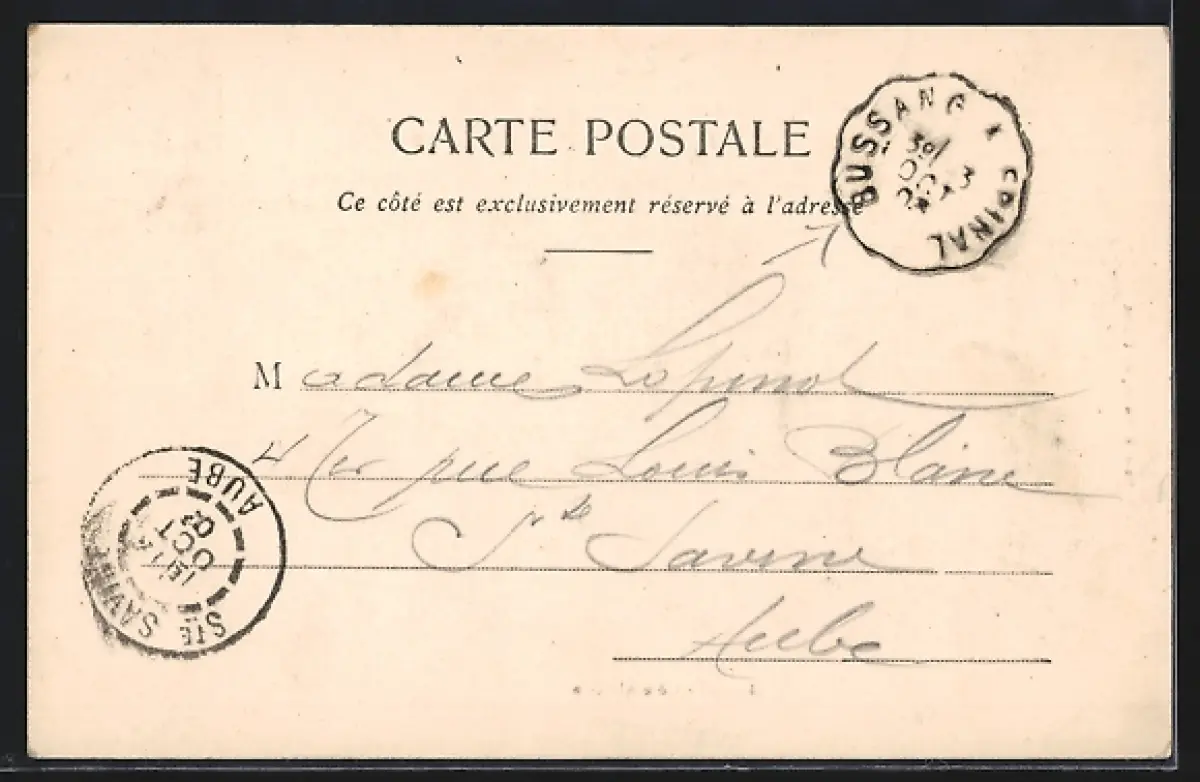 CARTE POSTALE
Ce côté est exclusivement réservé à l'adresse
BUSSANG À EPINAL
OCT
Madame Lopinot
rue Louis Blanc
Ste Savine
Aube
STE SAVINE
AUBE
OCT